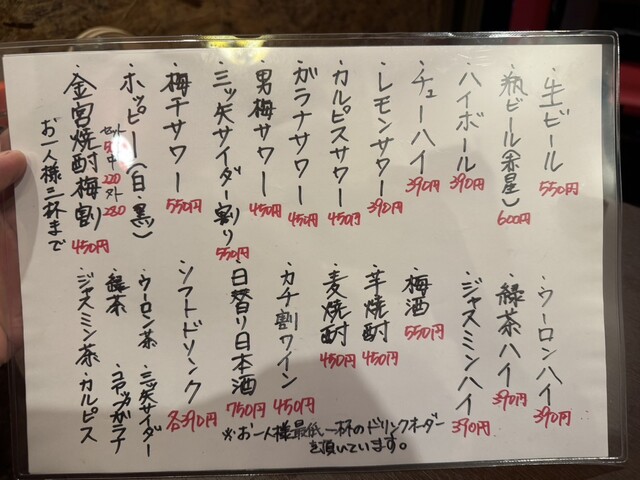 ・生ビール 550円
・瓶ビール(赤星) 600円
・ハイボール 390円
・チューハイ 390円
・レモンサワー 390円
・カルピスサワー 450円
・ガラナサワー 450円
・男梅サワー 450円
・三ッ矢サイダー割り 550円
・梅干サワー 550円
・ホッピー(白・黒)
セット
中 220
外 280
・金宮焼酎梅割り 450円
お一人様三杯まで
・ウーロンハイ 390円
・緑茶ハイ 390円
・ジャスミンハイ 390円
・梅酒 550円
・芋焼酎 450円
・麦焼酎 450円
・カチ割ワイン 450円
・日替り日本酒 750円
・ソフトドリンク 各390円
・ウーロン茶 ・三ッ矢サイダー
・緑茶 ・コアップガラナ
・ジャスミン茶 ・カルピス
※お一人様最低一杯のドリンクオーダー
を頂いています。